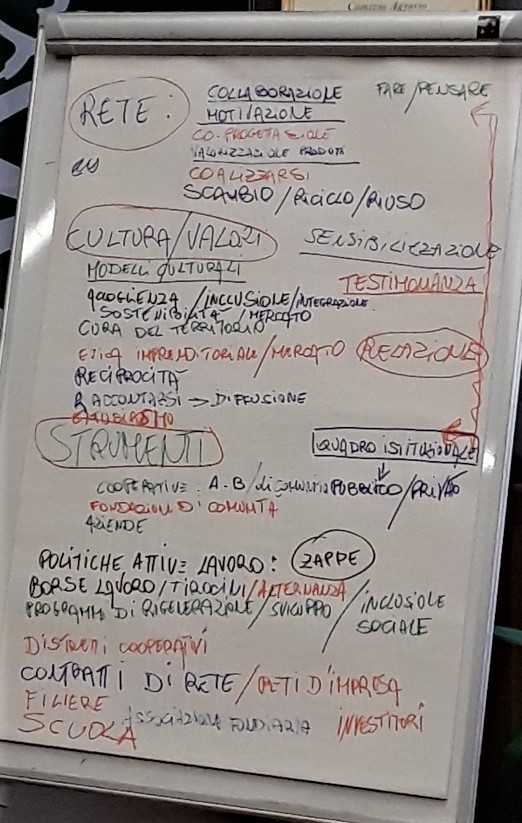 RETE:
COLLABORAZIONE
FARE/PENSARE
MOTIVAZIONE
CO-PROGETAZIONE
VALORIZZAZIONE PRODOTTI
COALIZZARSI
SCAMBIO/RICICLO/RIUSO
CULTURA/VALORI
SENSIBILIZZAZIONE
MODELLI CULTURALI
TESTIMONIANZA
ACCOGLIENZA/INCLUSIONE/INTEGRAZIONE
SOSTENIBILITÀ/MERCATO
CURA DEL TERRITORIO
ETICA IMPRENDITORIALE/MERCATO
RELAZIONE
RECIPROCITÀ
RACCONTARSI → DIFFUSIONE
STRUMENTI
QUADRO ISTITUZIONALE
COOPERATIVE: A-B/di COMUNITÀ
PUBBLICO/PRIVATO
FONDAZIONI DI COMUNITÀ
AZIENDE
POLITICHE ATTIVE LAVORO: ZAPPE
BORSE LAVORO/TIROCINI/ALTERNANZA
PROGRAMMI DI RIGENERAZIONE/SVILUPPO/INCLUSIONE
SOCIALE
DISTRETTI COOPERATIVI
CONTRATTI DI RETE/RETI D'IMPRESA
FILIERE
SCUOLA ASSOCIAZIONE FONDIARIA INVESTITORI